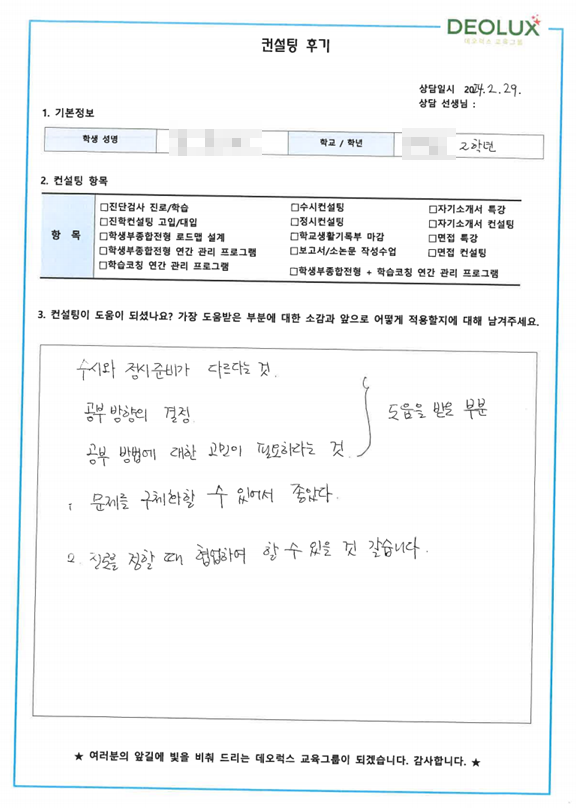 DEOLUX
데오럭스 교육그룹
컨설팅 후기
상담일시 2024.2.29.
상담 선생님 :
1. 기본정보
학생 성명 학교 / 학년 2학년
2. 컨설팅 항목
항 목
□진단검사 진로/학습 □수시컨설팅 □자기소개서 특강
□진학컨설팅 고입/대입 □정시컨설팅 □자기소개서 컨설팅
□학생부종합전형 로드맵 설계 □학교생활기록부 마감 □면접 특강
□학생부종합전형 연간 관리 프로그램 □보고서/소논문 작성수업 □면접 컨설팅
□학습코칭 연간 관리 프로그램 □학생부종합전형 + 학습코칭 연간 관리 프로그램
3. 컨설팅이 도움이 되셨나요? 가장 도움받은 부분에 대한 소감과 앞으로 어떻게 적용할지에 대해 남겨주세요.
수시와 정시준비가 다르다는 것.
공부 방향의 결정. 도움을 받은 부분
공부 방법에 대한 고민이 필요하라는 것.
1. 문제를 구체화할 수 있어서 좋았다.
2. 진로를 정할 때 협업하여 할 수 있을 것 같습니다.
★ 여러분의 앞길에 빛을 비춰 드리는 데오럭스 교육그룹이 되겠습니다. 감사합니다. ★